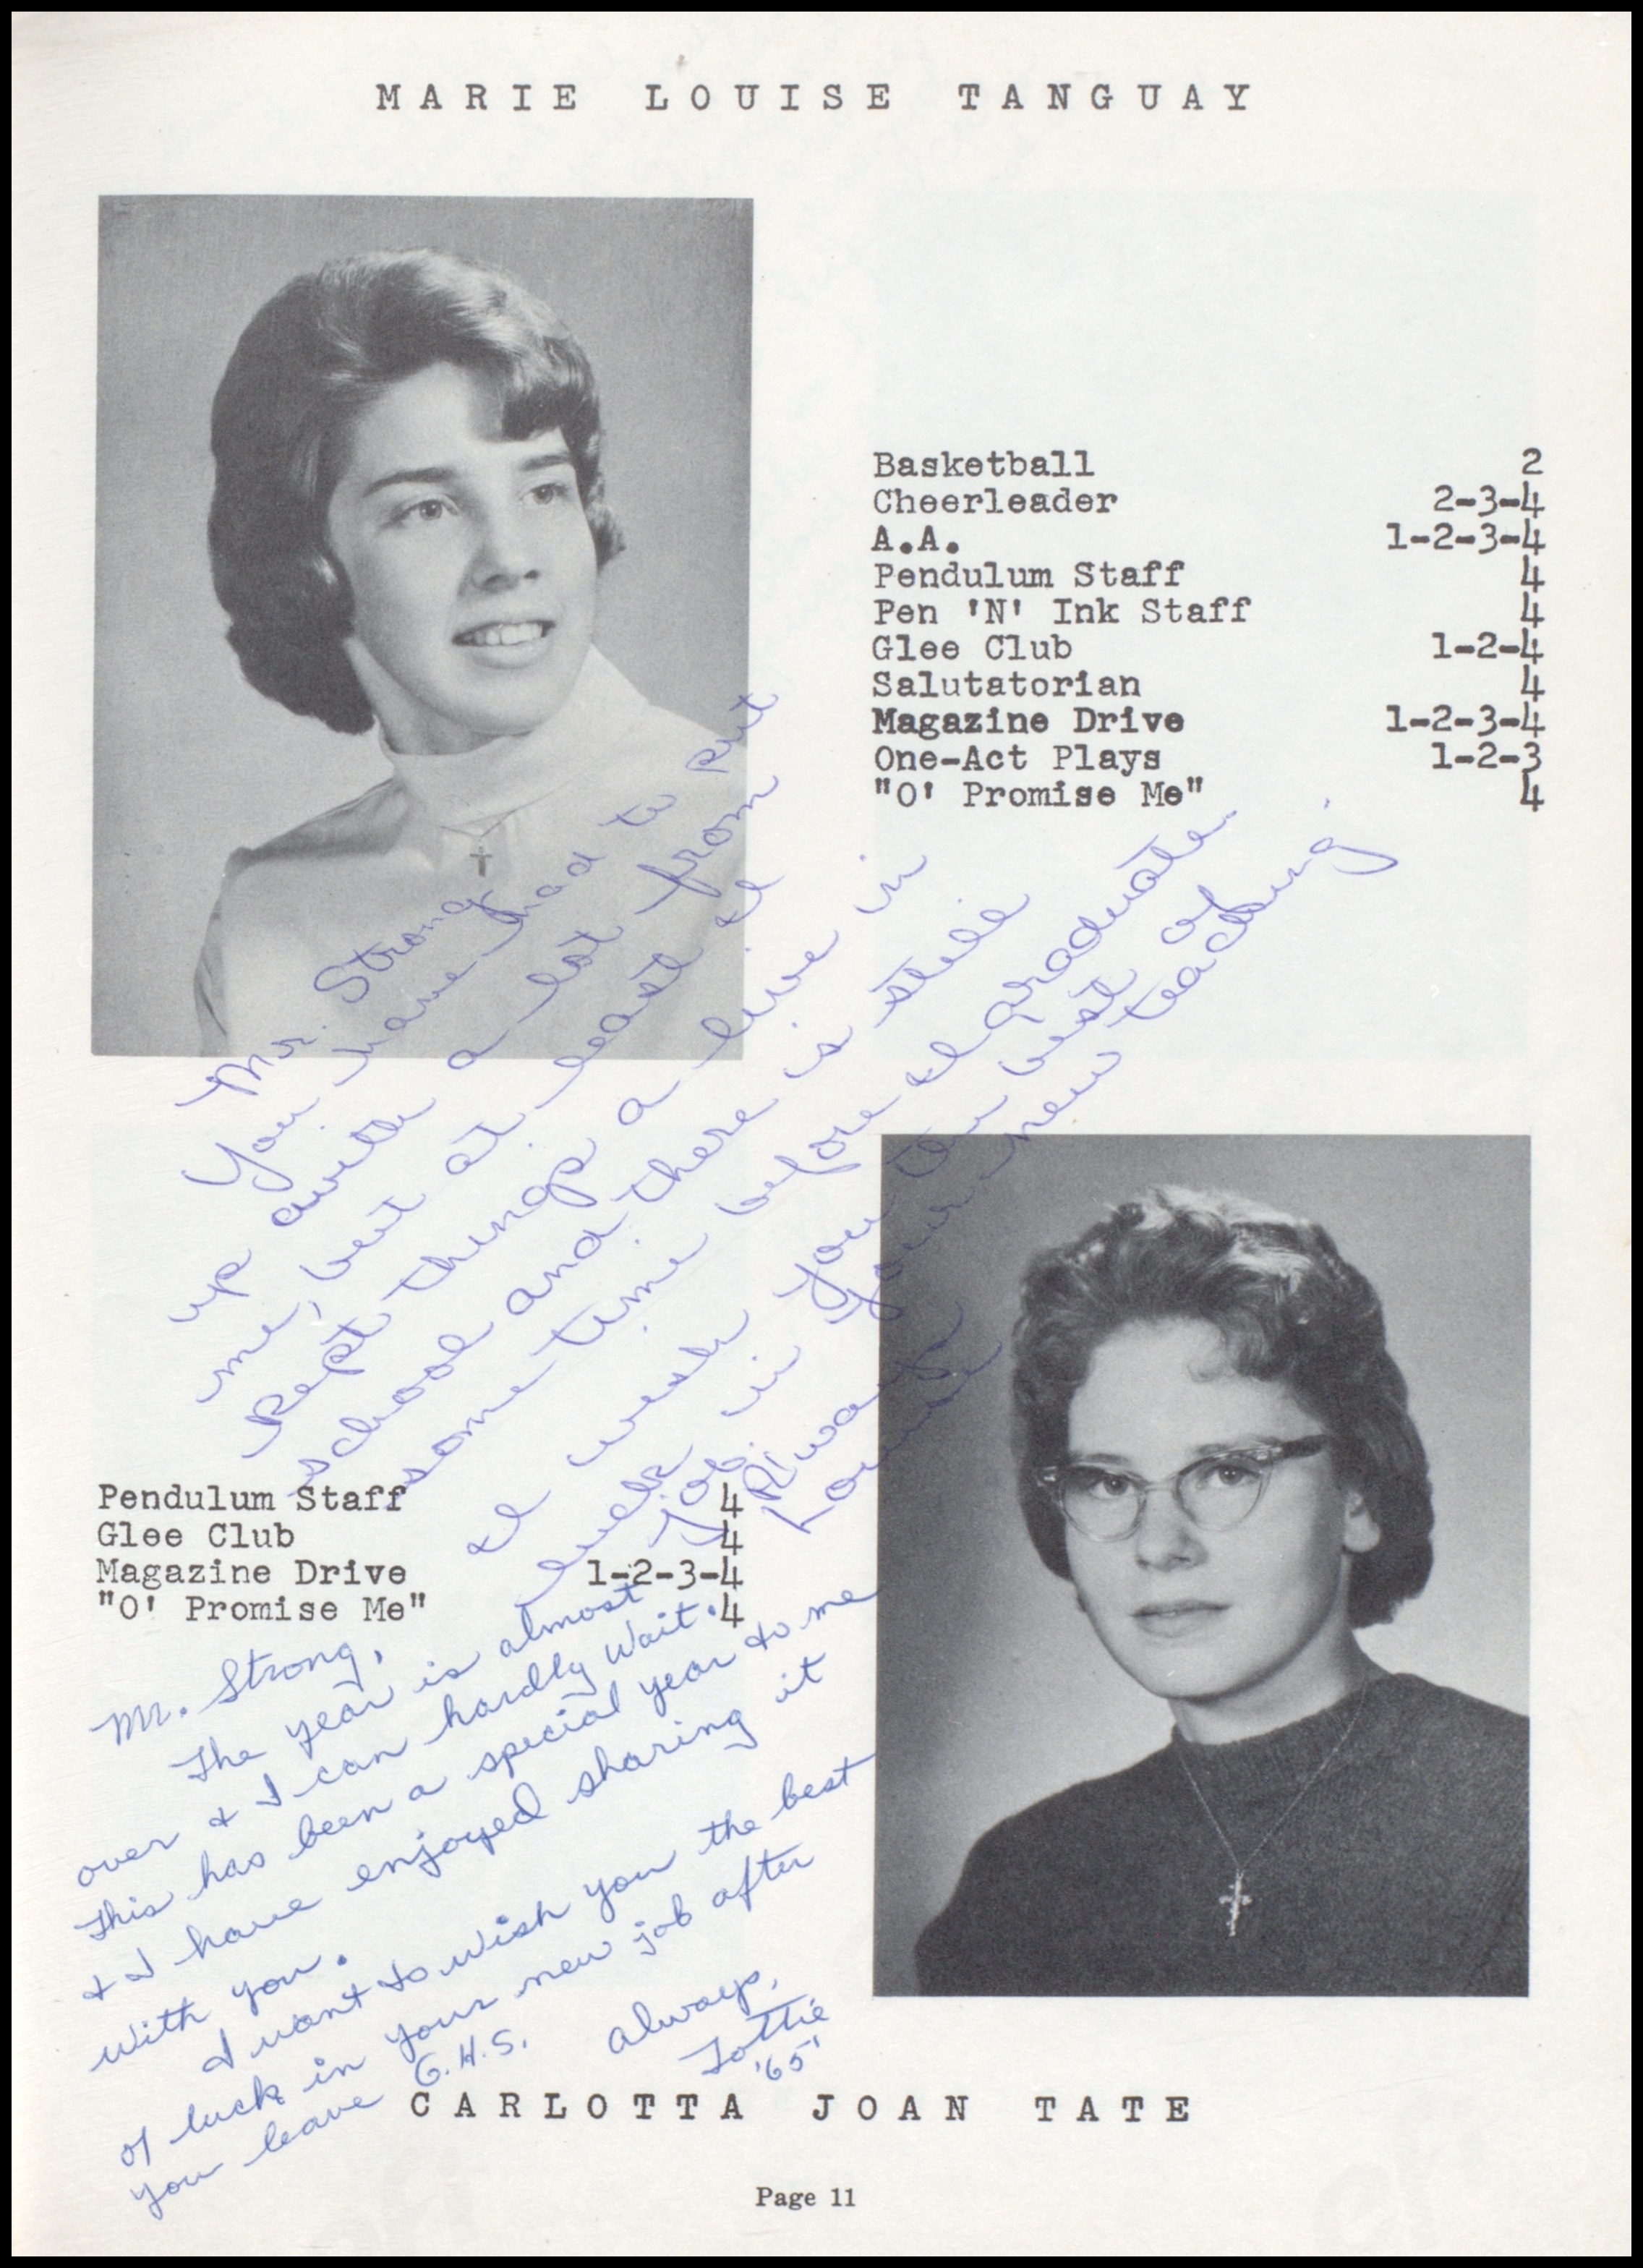 MARIE LOUISE TANGUAY
Basketball 2
Cheerleader 2-3-4
A.A. 1-2-3-4
Pendulum Staff 4
Pen 'N' Ink Staff 4
Glee Club 1-2-4
Salutatorian 4
Magazine Drive 1-2-3-4
One-Act Plays 1-2-3
"O' Promise Me" 4
Mr. Strong
You have had to put
up with a lot from
me, but at least I
kept things a live in
school and there is still
some time before I graduate.
I wish you the best of
luck in your new teaching
job.
Always
Louise
Pendulum Staff 4
Glee Club 4
Magazine Drive 1-2-3-4
"O' Promise Me" 4
Mr. Strong,
The year is almost
over & I can hardly wait.
This has been a special year to me
& I have enjoyed sharing it
with you.
I want to wish you the best
of luck in your new job after
you leave G.H.S.
Always,
Lottie
'65'
CARLOTTA JOAN TATE
Page 11